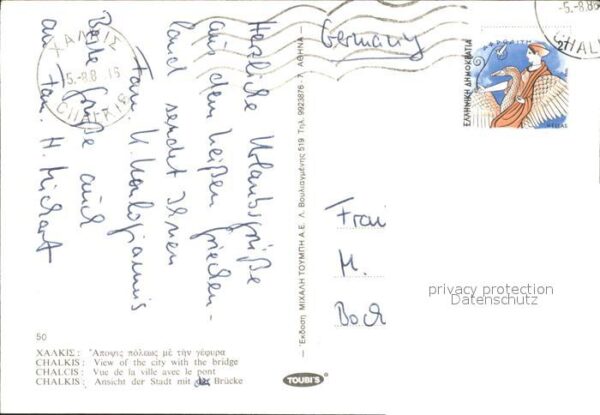 Herzliche Urlaubsgrüße
aus dem heißen Griechen-
land sendet Ihnen
Fam. K. Karlogiannis
Beste Grüße auch
an Fam. H. Michart
Germany
ΧΑΛΚΙΣ
5.-8.8
CHALKIS
-5.-8.8
CHAL
ΑΦΡΟΔΙΤΗ
ΕΛΛΗΝΙΚΗ ΔΗΜΟΚΡΑΤΙΑ
HELLAS
Frau
M.
Bock
privacy protection
Datenschutz
Έκδοση ΜΙΧΑΛΗ ΤΟΥΜΠΗ Α.Ε. Λ. Βουλιαγμένης 519 Τηλ. 9923876 - 7, ΑΘΗΝΑ
50
ΧΑΛΚΙΣ: Ἄποψις πόλεως μὲ τὴν γέφυρα
CHALKIS: View of the city with the bridge
CHALCIS: Vue de la ville avec le pont
CHALKIS: Ansicht der Stadt mit der Brücke
TOUBI'S